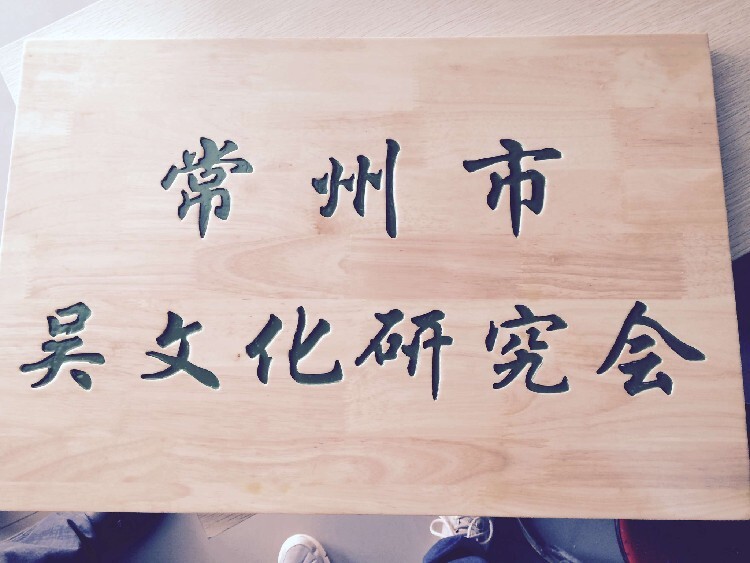 常州市
吴文化研究会